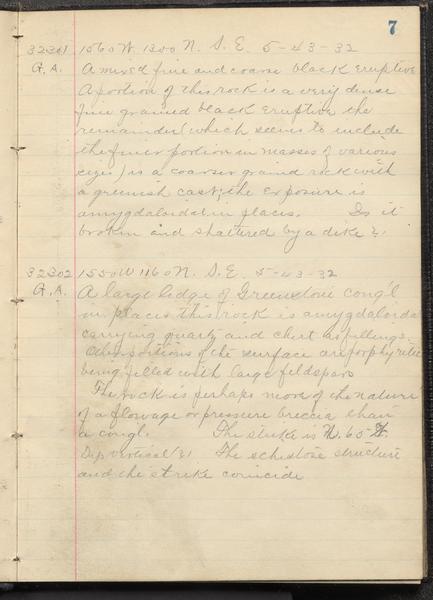 7
32301 1560 W. 1300 N. S. E. 5-43-32
G. A. A mixed fine and coarse black eruptive
A portion of this rock is a very dense
fine grained black eruptive the
remainder (which seems to include
the finer portion in masses of various
sizes) is a coarser grained rock with
a greenish cast; the exposure is
amygdaloidal in places. Is it
broken and shattered by a dike?
32302 1550 W 1160 N. S. E. 5-43-32
G. A. A large ledge of Greenstone cong'l
in places this rock is amygdaloidal
carrying quartz and chert as fillings.
Other portions of the surface are porphyritic
being filled with large feldspars
The rock is perhaps more of the nature
of a flowage or pressure breccia than
a congl. The strike is N. 65 W.
Dip vertical (?) The schistose structure
and the strike coincide